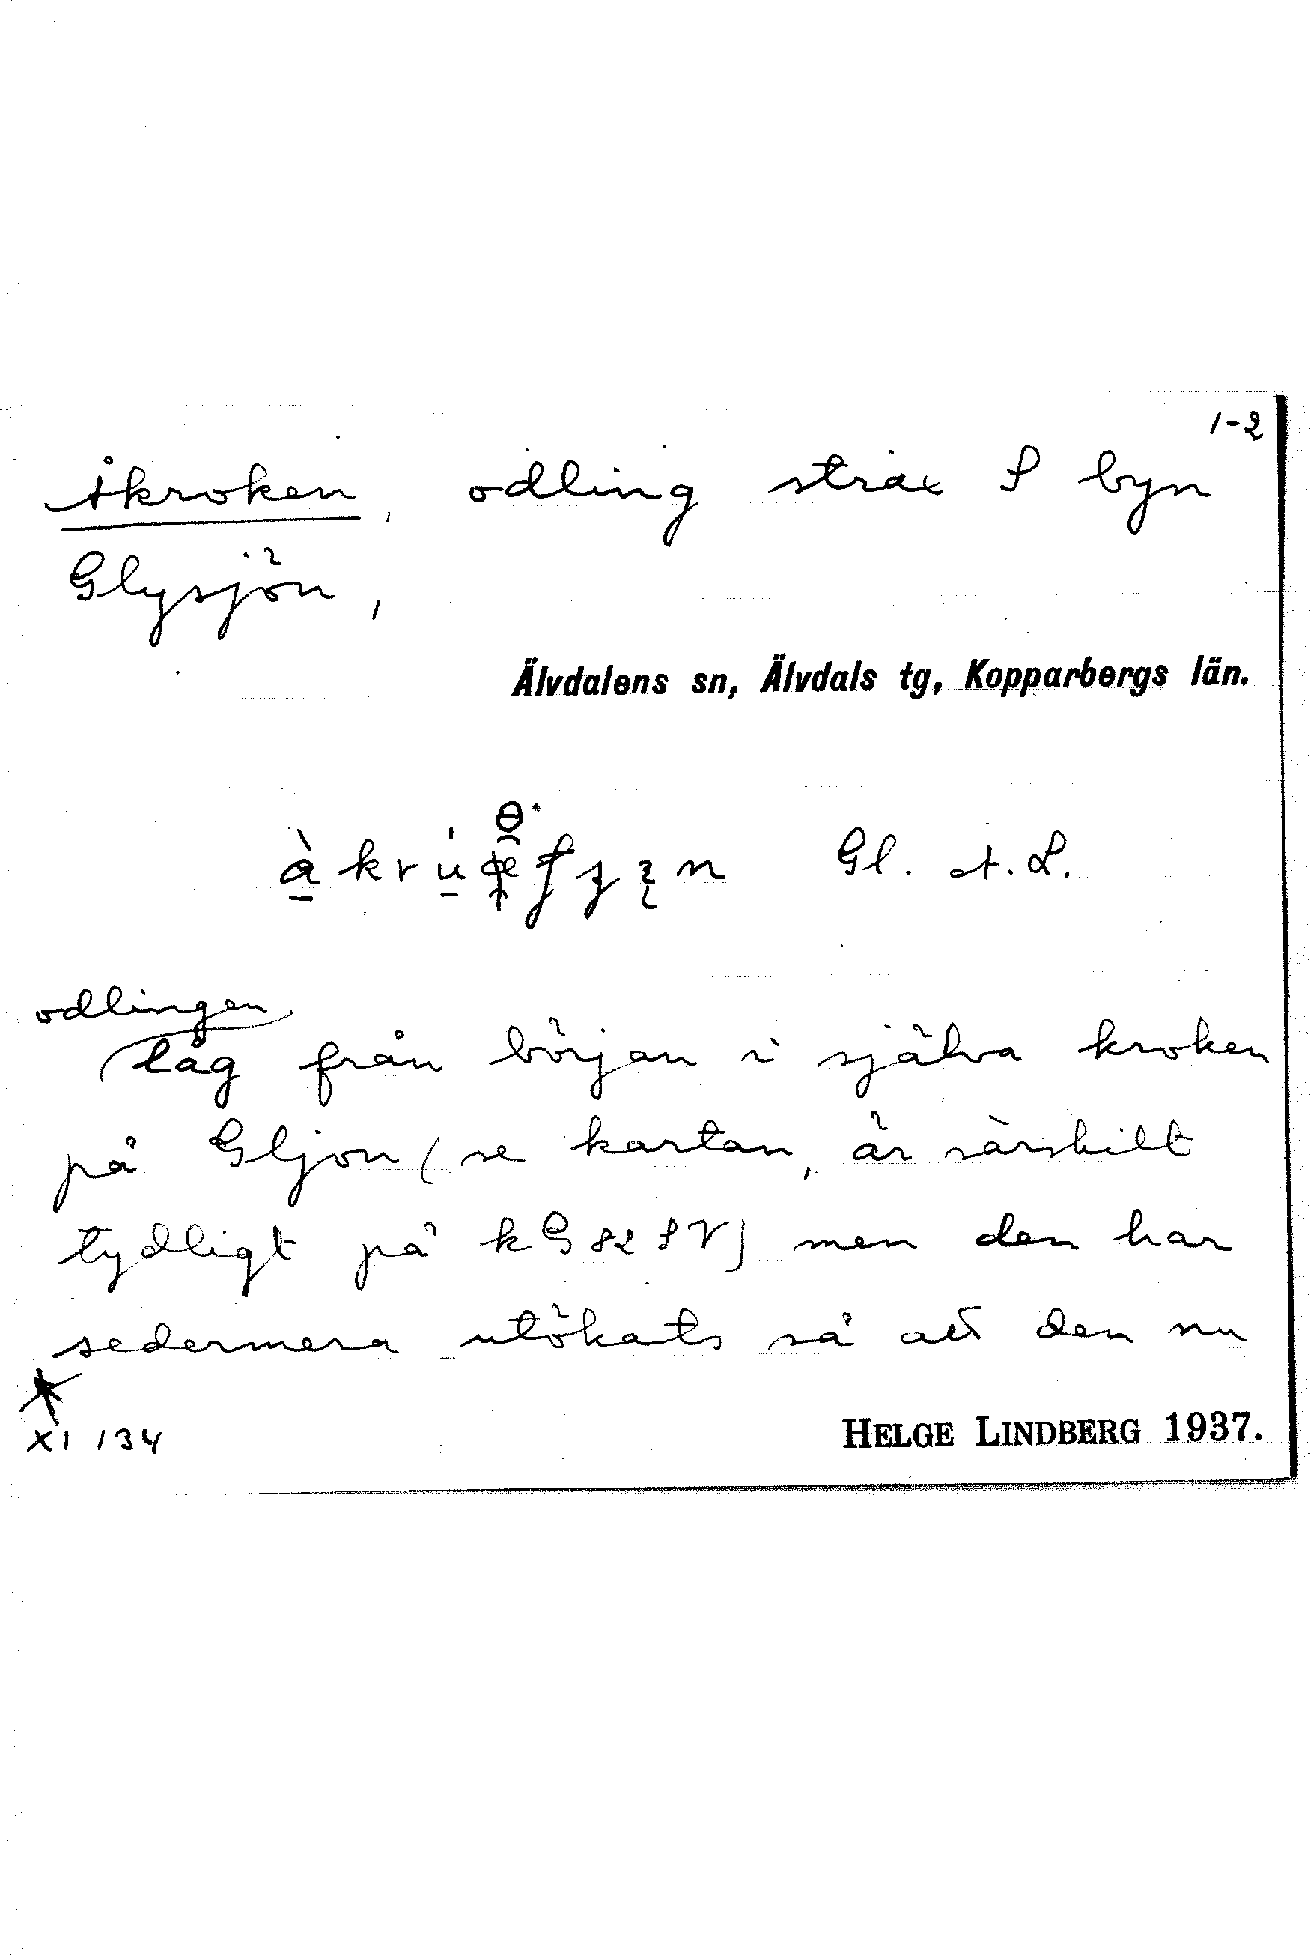 1-2
Åkroken, odling strax S byn
Glysjön,
Älvdalens sn, Älvdals tg, Kopparbergs län.
Gl. A.L.
odlingen
låg från början i själva kroken
på Gljon (se kartan, är särskilt
tydligt på k G 82 SV) men den har
sedermera utökats så att den nu
XI 134
HELGE LINDBERG 1937.